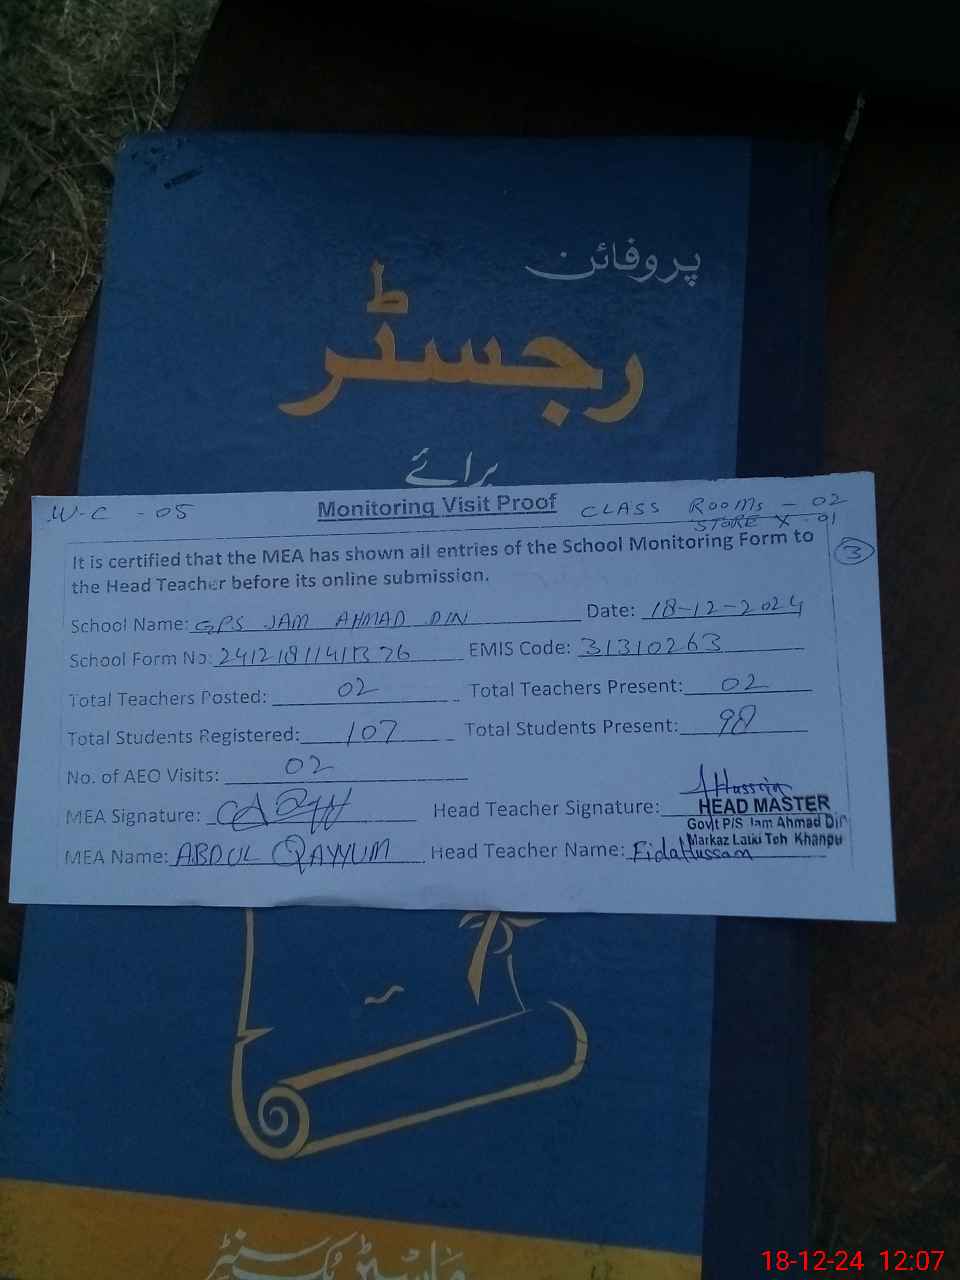 پروفائن
رجسٹر
برائے
W-C - 05 Monitoring Visit Proof CLASS ROOMS - 02
STORE X - 01
3
It is certified that the MEA has shown all entries of the School Monitoring Form to
the Head Teacher before its online submission.
School Name: GPS JAM AHMAD DIN Date: 18-12-2024
School Form No: EMIS Code: 31310263
Total Teachers Posted: 02 Total Teachers Present: 02
Total Students Registered: 107 Total Students Present: 98
No. of AEO Visits: 02
MEA Signature: Head Teacher Signature: Hussain
HEAD MASTER
Govt P/S Jam Ahmad Din
Markaz Teh Khanpu
MEA Name: ABDUL QAYYUM Head Teacher Name: Fida Hussain
18-12-24 12:07